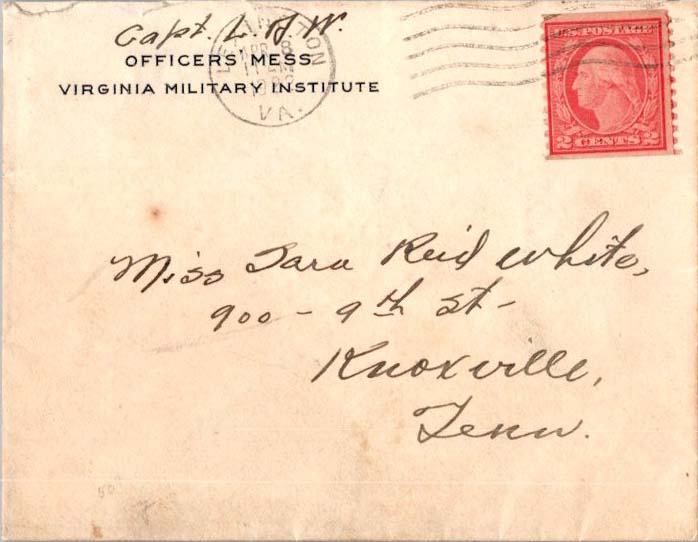 Capt. L. S. W.
OFFICERS' MESS
VIRGINIA MILITARY INSTITUTE
LEXINGTON
APR 8
VA.
U.S. POSTAGE
2 CENTS 2
Miss Sara Reid White,
900 - 9th St -
Knoxville,
Tenn.